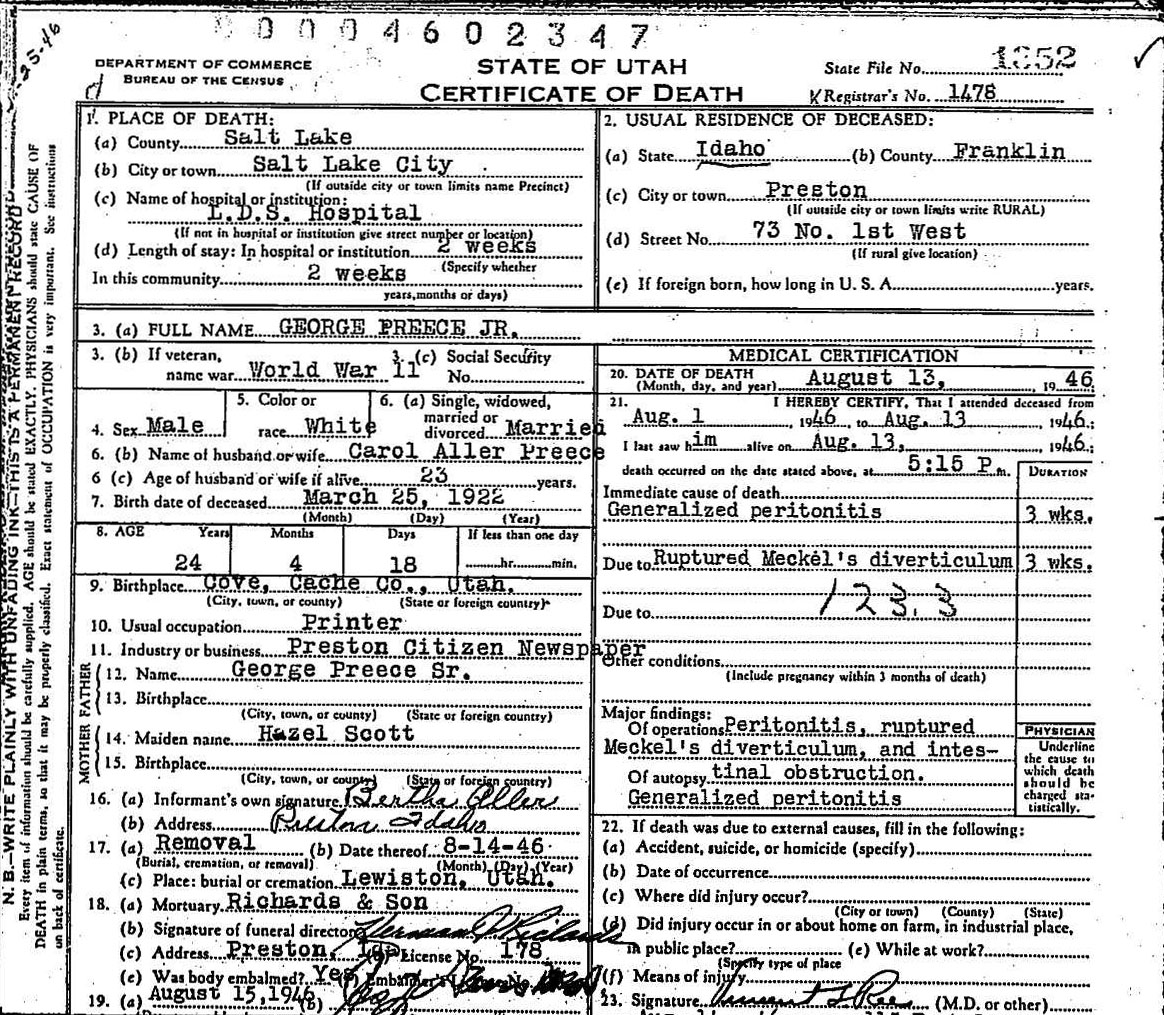 0 0 0 4 6 0 2 3 4 7
25-46
DEPARTMENT OF COMMERCE
BUREAU OF THE CENSUS
STATE OF UTAH
CERTIFICATE OF DEATH
State File No. 1352
Registrar's No. 1478
N. B.—WRITE PLAINLY WITH UNFADING INK—THIS IS A PERMANENT RECORD
Every item of information should be carefully supplied. AGE should be stated EXACTLY. PHYSICIANS should state CAUSE OF
DEATH in plain terms, so that it may be properly classified. Exact statement of OCCUPATION is very important. See instructions
on back of certificate.
1. PLACE OF DEATH:
(a) County Salt Lake
(b) City or town Salt Lake City
(If outside city or town limits name Precinct)
(c) Name of hospital or institution:
L.D.S. Hospital
(If not in hospital or institution give street number or location)
(d) Length of stay: In hospital or institution 2 weeks
(Specify whether
In this community 2 weeks
years, months or days)
2. USUAL RESIDENCE OF DECEASED:
(a) State Idaho (b) County Franklin
(c) City or town Preston
(If outside city or town limits write RURAL)
(d) Street No. 73 No. 1st West
(If rural give location)
(e) If foreign born, how long in U. S. A. years.
3. (a) FULL NAME GEORGE PREECE JR.
3. (b) If veteran,
name war World War 11
3. (c) Social Security
No.
4. Sex Male
5. Color or
race White
6. (a) Single, widowed,
married or
divorced Married
6. (b) Name of husband or wife Carol Aller Preece
6 (c) Age of husband or wife if alive 23 years.
7. Birth date of deceased March 25, 1922
(Month) (Day) (Year)
8. AGE Years Months Days If less than one day
24 4 18 hr. min.
9. Birthplace Cove, Cache Co., Utah.
(City, town, or county) (State or foreign country)
10. Usual occupation Printer
11. Industry or business Preston Citizen Newspaper
FATHER
12. Name George Preece Sr.
13. Birthplace
(City, town, or county) (State or foreign country)
MOTHER
14. Maiden name Hazel Scott
15. Birthplace
(City, town, or county) (State or foreign country)
16. (a) Informant's own signature Bertha Aller
(b) Address Preston Idaho
17. (a) Removal (b) Date thereof 8-14-46
(Burial, cremation, or removal) (Month) (Day) (Year)
(c) Place: burial or cremation Lewiston, Utah.
18. (a) Mortuary Richards & Son
(b) Signature of funeral director Herman Richards
(c) Address Preston, Ida License No. 178
(e) Was body embalmed? Yes (f) Embalmer's License No.
19. (a) August 15, 1946 (b)
MEDICAL CERTIFICATION
20. DATE OF DEATH
(Month, day, and year) August 13, 1946
21. I HEREBY CERTIFY, That I attended deceased from
Aug. 1, 1946, to Aug. 13, 1946.;
I last saw him alive on Aug. 13, 1946.;
death occurred on the date stated above, at 5:15 P.m.
DURATION
Immediate cause of death
Generalized peritonitis 3 wks.
Due to Ruptured Meckel's diverticulum 3 wks.
123.3
Due to
Other conditions
(Include pregnancy within 3 months of death)
Major findings:
Of operations Peritonitis, ruptured
Meckel's diverticulum, and intes-
Of autopsy tinal obstruction.
Generalized peritonitis
PHYSICIAN
Underline
the cause to
which death
should be
charged sta-
tistically.
22. If death was due to external causes, fill in the following:
(a) Accident, suicide, or homicide (specify)
(b) Date of occurrence
(c) Where did injury occur?
(City or town) (County) (State)
(d) Did injury occur in or about home on farm, in industrial place,
in public place? (e) While at work?
(Specify type of place
(f) Means of injury
23. Signature Vincent L Rees (M.D. or other)